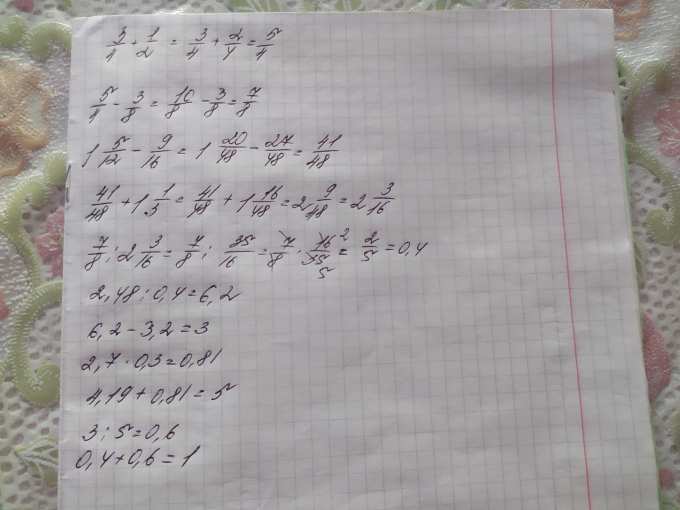 3/4 + 1/2 = 3/4 + 2/4 = 5/4
5/4 - 3/8 = 10/8 - 3/8 = 7/8
1 5/12 - 9/16 = 1 20/48 - 27/48 = 41/48
41/48 + 1 1/3 = 41/48 + 1 16/48 = 2 9/48 = 2 3/16
7/8 : 2 3/16 = 7/8 : 35/16 = 7/8 · 16/35 2 5 = 2/5 = 0,4
2,48 : 0,4 = 6,2
6,2 - 3,2 = 3
2,7 · 0,3 = 0,81
4,19 + 0,81 = 5
3 : 5 = 0,6
0,4 + 0,6 = 1